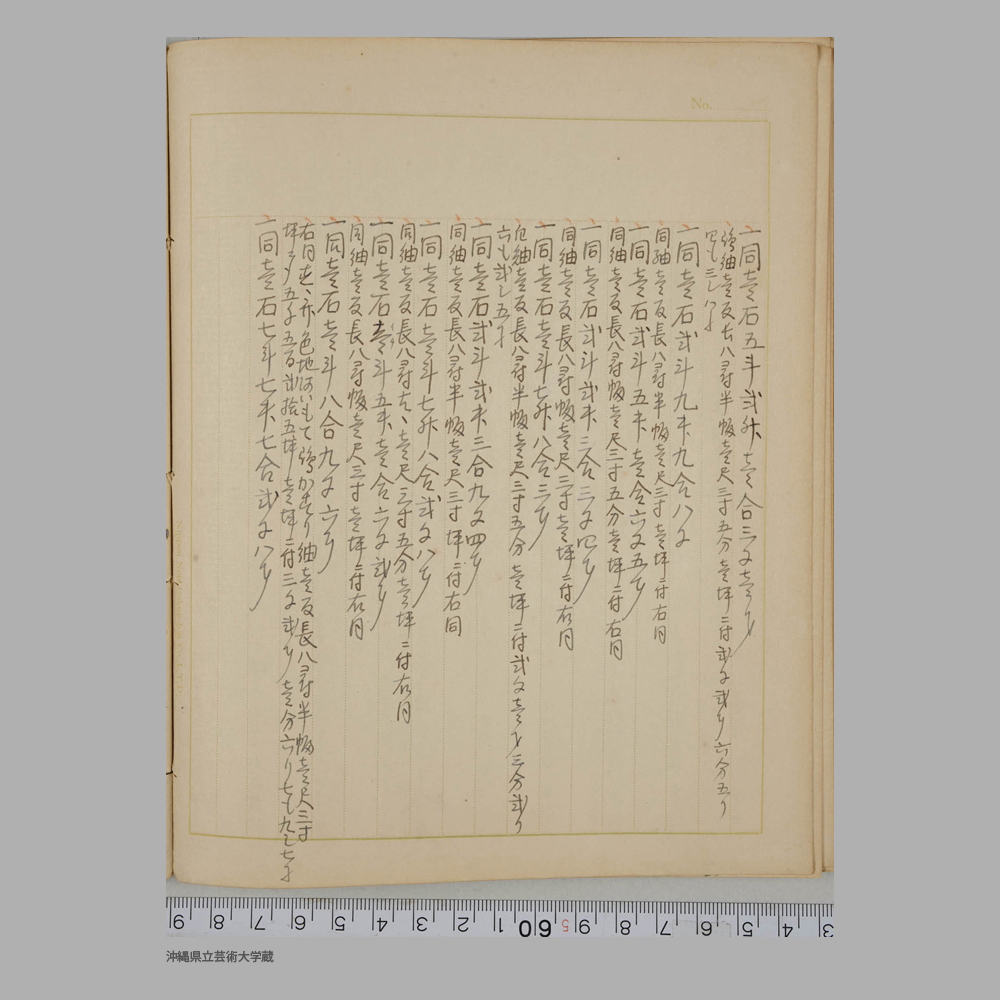 No.
一同壱石五斗弐升壱合三夕壱才
紬壱反長八尋半幅壱尺三寸五分壱坪ニ付弐夕弐才六分五り
一同壱石弐斗九升九合八夕
同紬壱反長八尋半幅壱尺三寸壱坪ニ付右同
一同壱石弐斗五升壱合六夕五才
同紬壱反長八尋幅壱尺三寸五分壱坪ニ付右同
一同壱石弐斗弐升三合三夕四才
同紬壱反長八尋幅壱尺三寸壱坪ニ付右同
一同壱石壱斗七升八合三才
紬壱反長八尋半幅壱尺三寸五分壱坪ニ付弐夕壱才三分弐り
六も弐し五才
一同壱石弐斗弐升三合九夕四才
同紬壱反長八尋半幅壱尺三寸坪ニ付右同
一同壱石壱斗七升八合弐夕八才
同紬壱反長八尋壱尺三寸五分壱坪ニ付右同
一同壱石壱斗五升壱合六夕弐才
同紬壱反長八尋幅壱尺三寸壱坪ニ付右同
一同壱石壱斗八合九夕六才
右同色地紬壱反長八尋半幅壱尺三寸
坪五百弐拾五坪壱坪ニ付三夕弐才壱分六り七も九し七才
一同壱石七斗七升七合弐夕八才
9 8 7 6 5 4 3 2 1 60 5 9 8 7 6 5 4 3
沖縄県立芸術大学蔵